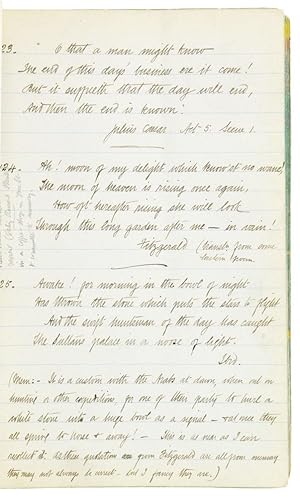 23. "O that a man might know
The end of this day's business ere it come!
But it sufficeth that the day will end,
And then the end is known!
Julius Caesar Act 5. Scene 1.
24. Ah! moon of my delight which know'st no wane!
The moon of heaven is rising once again,
How oft hereafter rising shall she look
Through this long garden after me – in vain!
Fitzgerald (transltd from some
Eastern poem
25. Awake! for morning in the bowl of night
Has thrown the stone which puts the stars to flight
And the swift huntsman of the day has caught
The Sultan's palace in a noose of light.
Ibid.
(Mem:- It is a custom with the Arabs at dawn, when out on
hunting or other expedition, for one of their party to hurl a
white stone into a huge bowl as a signal – & at once they
all spring to horse & away! – This is as near as I can
recollect it. As these quotations from Fitzgerald are all from memory
they may not always be correct – but I fancy they are.)